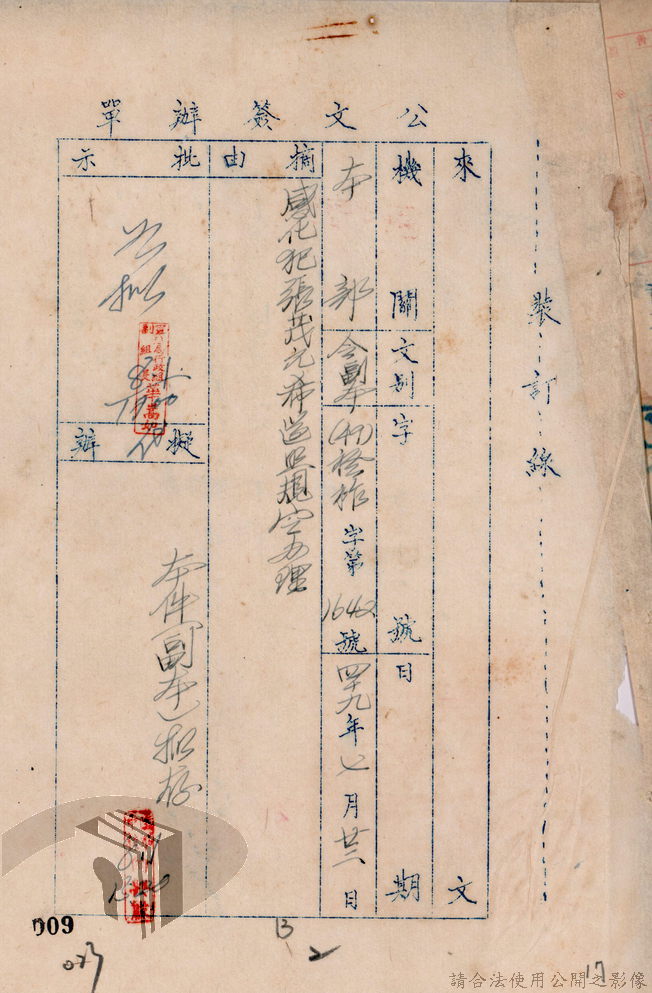 公文簽辦單
裝訂線
來文
機關
文別
字號
日期
本部
令副本
(49)
字第1642號
四十九年七月廿三日
摘由
感化犯張茂元希造照規定办理
批示
如擬
擬辦
本件(副本)擬存
009
13
2
17
請合法使用公開之影像